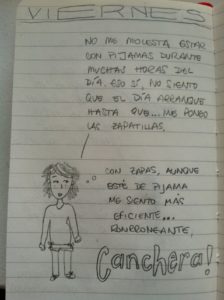 VIERNES
NO ME MOLESTA ESTAR
CON PIJAMAS DURANTE
MUCHAS HORAS DEL
DÍA. ESO SÍ, NO SIENTO
QUE EL DÍA ARRANQUE
HASTA QUE... ME PONGO
LAS ZAPATILLAS.
CON ZAPAS, AUNQUE
ESTÉ DE PIJAMA
ME SIENTO MÁS
EFICIENTE...
RONRONEANTE,
Canchera!